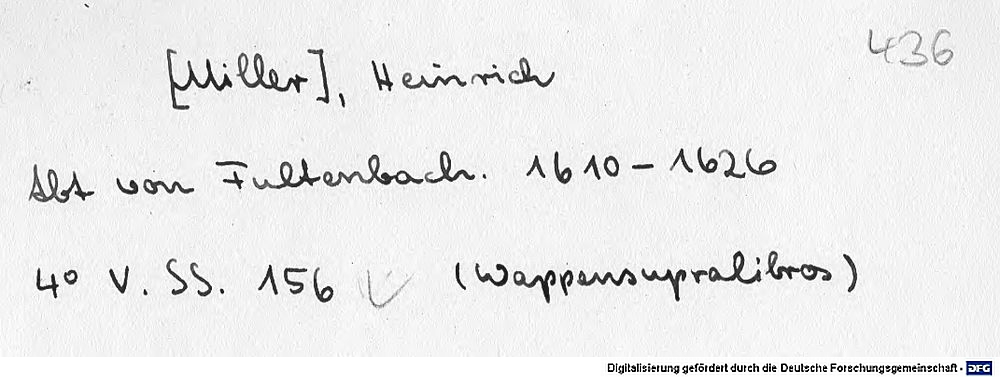 436
[Miller], Heinrich
Abt von Fultenbach. 1610 - 1626
4° V. SS. 156 (Wappensupralibros)
Digitalisierung gefördert durch die Deutsche Forschungsgemeinschaft - DFG